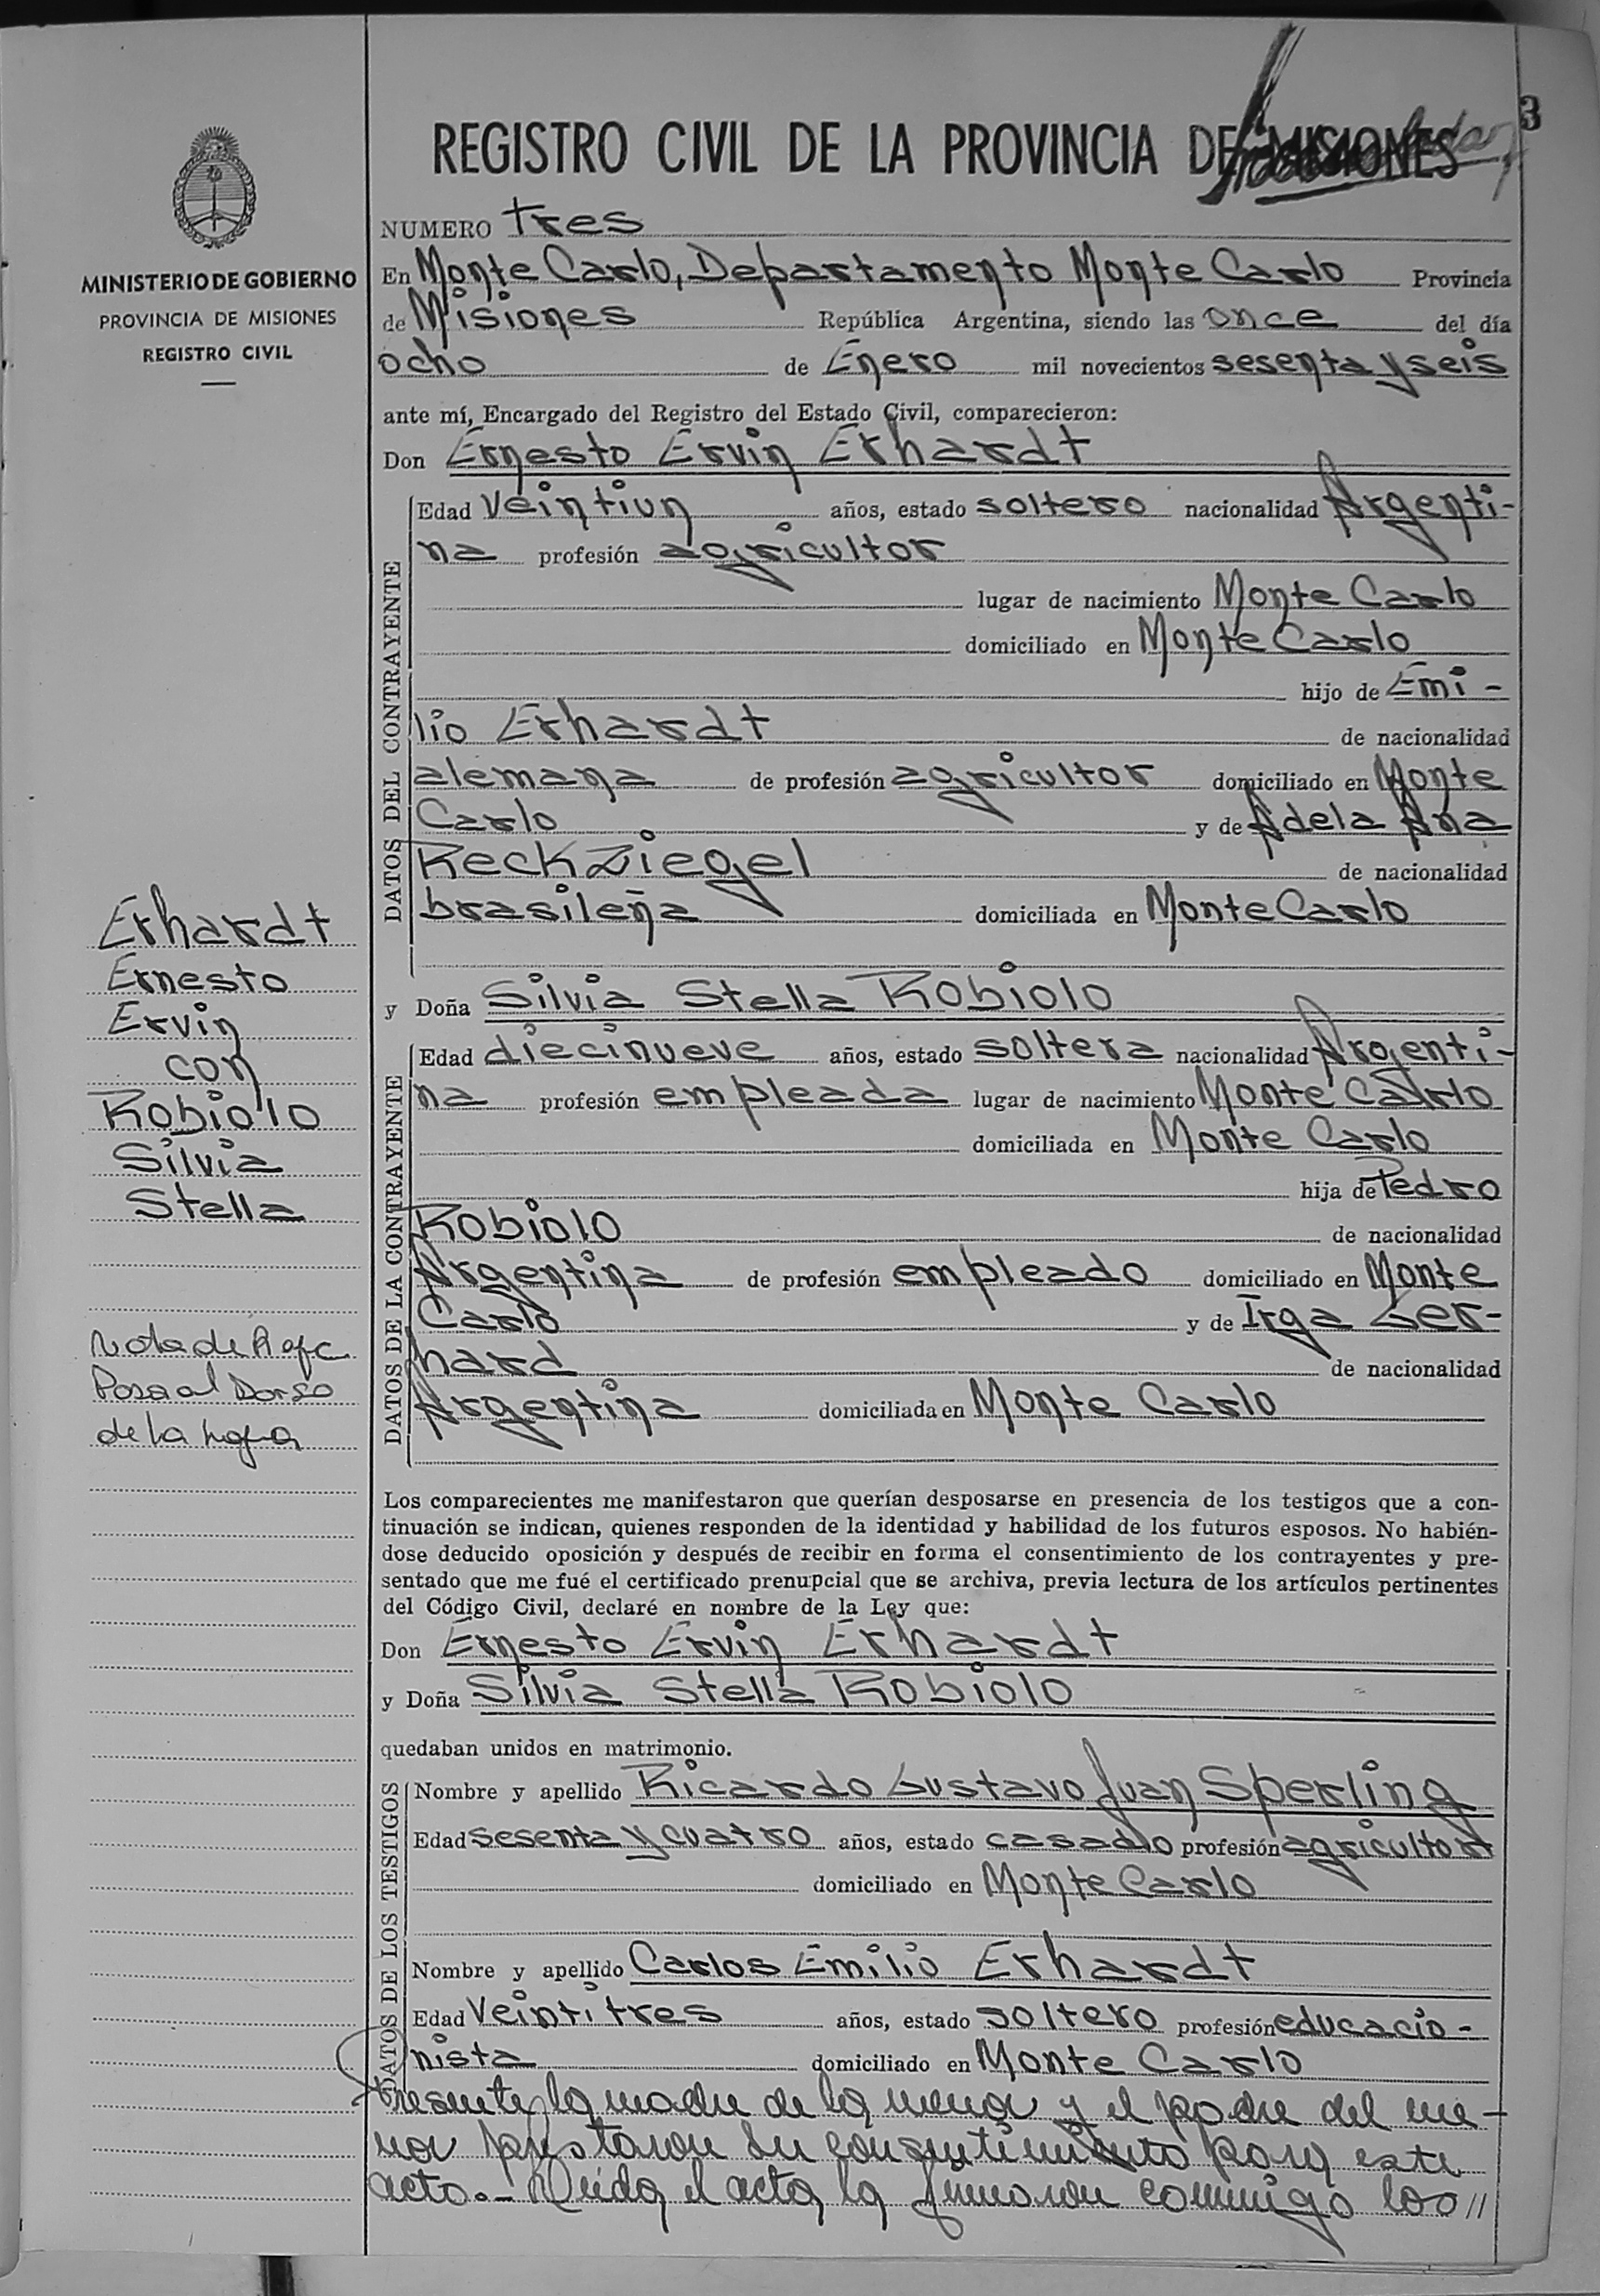 3
REGISTRO CIVIL DE LA PROVINCIA DE MISIONES
MINISTERIO DE GOBIERNO
PROVINCIA DE MISIONES
REGISTRO CIVIL
NUMERO tres
En Monte Carlo, Departamento Monte Carlo Provincia
de Misiones República Argentina, siendo las once del día
ocho de Enero mil novecientos sesenta y seis
ante mí, Encargado del Registro del Estado Civil, comparecieron:
Don Ernesto Ervin Erhardt
DATOS DEL CONTRAYENTE
Edad veintiun años, estado soltero nacionalidad Argenti-
na profesión agricultor
lugar de nacimiento Monte Carlo
domiciliado en Monte Carlo
hijo de Emi-
lio Erhardt de nacionalidad
alemana de profesión agricultor domiciliado en Monte
Carlo y de Adela Ana
Reckziegel de nacionalidad
brasileña domiciliada en Monte Carlo
y Doña Silvia Stella Robiolo
DATOS DE LA CONTRAYENTE
Edad diecinueve años, estado soltera nacionalidad Argenti-
na profesión empleada lugar de nacimiento Monte Carlo
domiciliada en Monte Carlo
hija de Pedro
Robiolo de nacionalidad
Argentina de profesión empleado domiciliado en Monte
Carlo y de Irga Ger-
hard de nacionalidad
Argentina domiciliada en Monte Carlo
Los comparecientes me manifestaron que querían desposarse en presencia de los testigos que a con-
tinuación se indican, quienes responden de la identidad y habilidad de los futuros esposos. No habién-
dose deducido oposición y después de recibir en forma el consentimiento de los contrayentes y pre-
sentado que me fué el certificado prenupcial que se archiva, previa lectura de los artículos pertinentes
del Código Civil, declaré en nombre de la Ley que:
Don Ernesto Ervin Erhardt
y Doña Silvia Stella Robiolo
quedaban unidos en matrimonio.
DATOS DE LOS TESTIGOS
Nombre y apellido Ricardo Gustavo Juan Sperling
Edad sesenta y cuatro años, estado casado profesión agricultor
domiciliado en Monte Carlo
Nombre y apellido Carlos Emilio Erhardt
Edad veintitres años, estado soltero profesión educacio-
nista domiciliado en Monte Carlo
Presente la madre de la menor y el padre del me-
nor prestaron su consentimiento para este
acto.- Leida el acta la firmaron conmigo los //
Erhardt
Ernesto
Ervin
con
Robiolo
Silvia
Stella
Nota de Refc
Pasa al Dorso
de la hoja